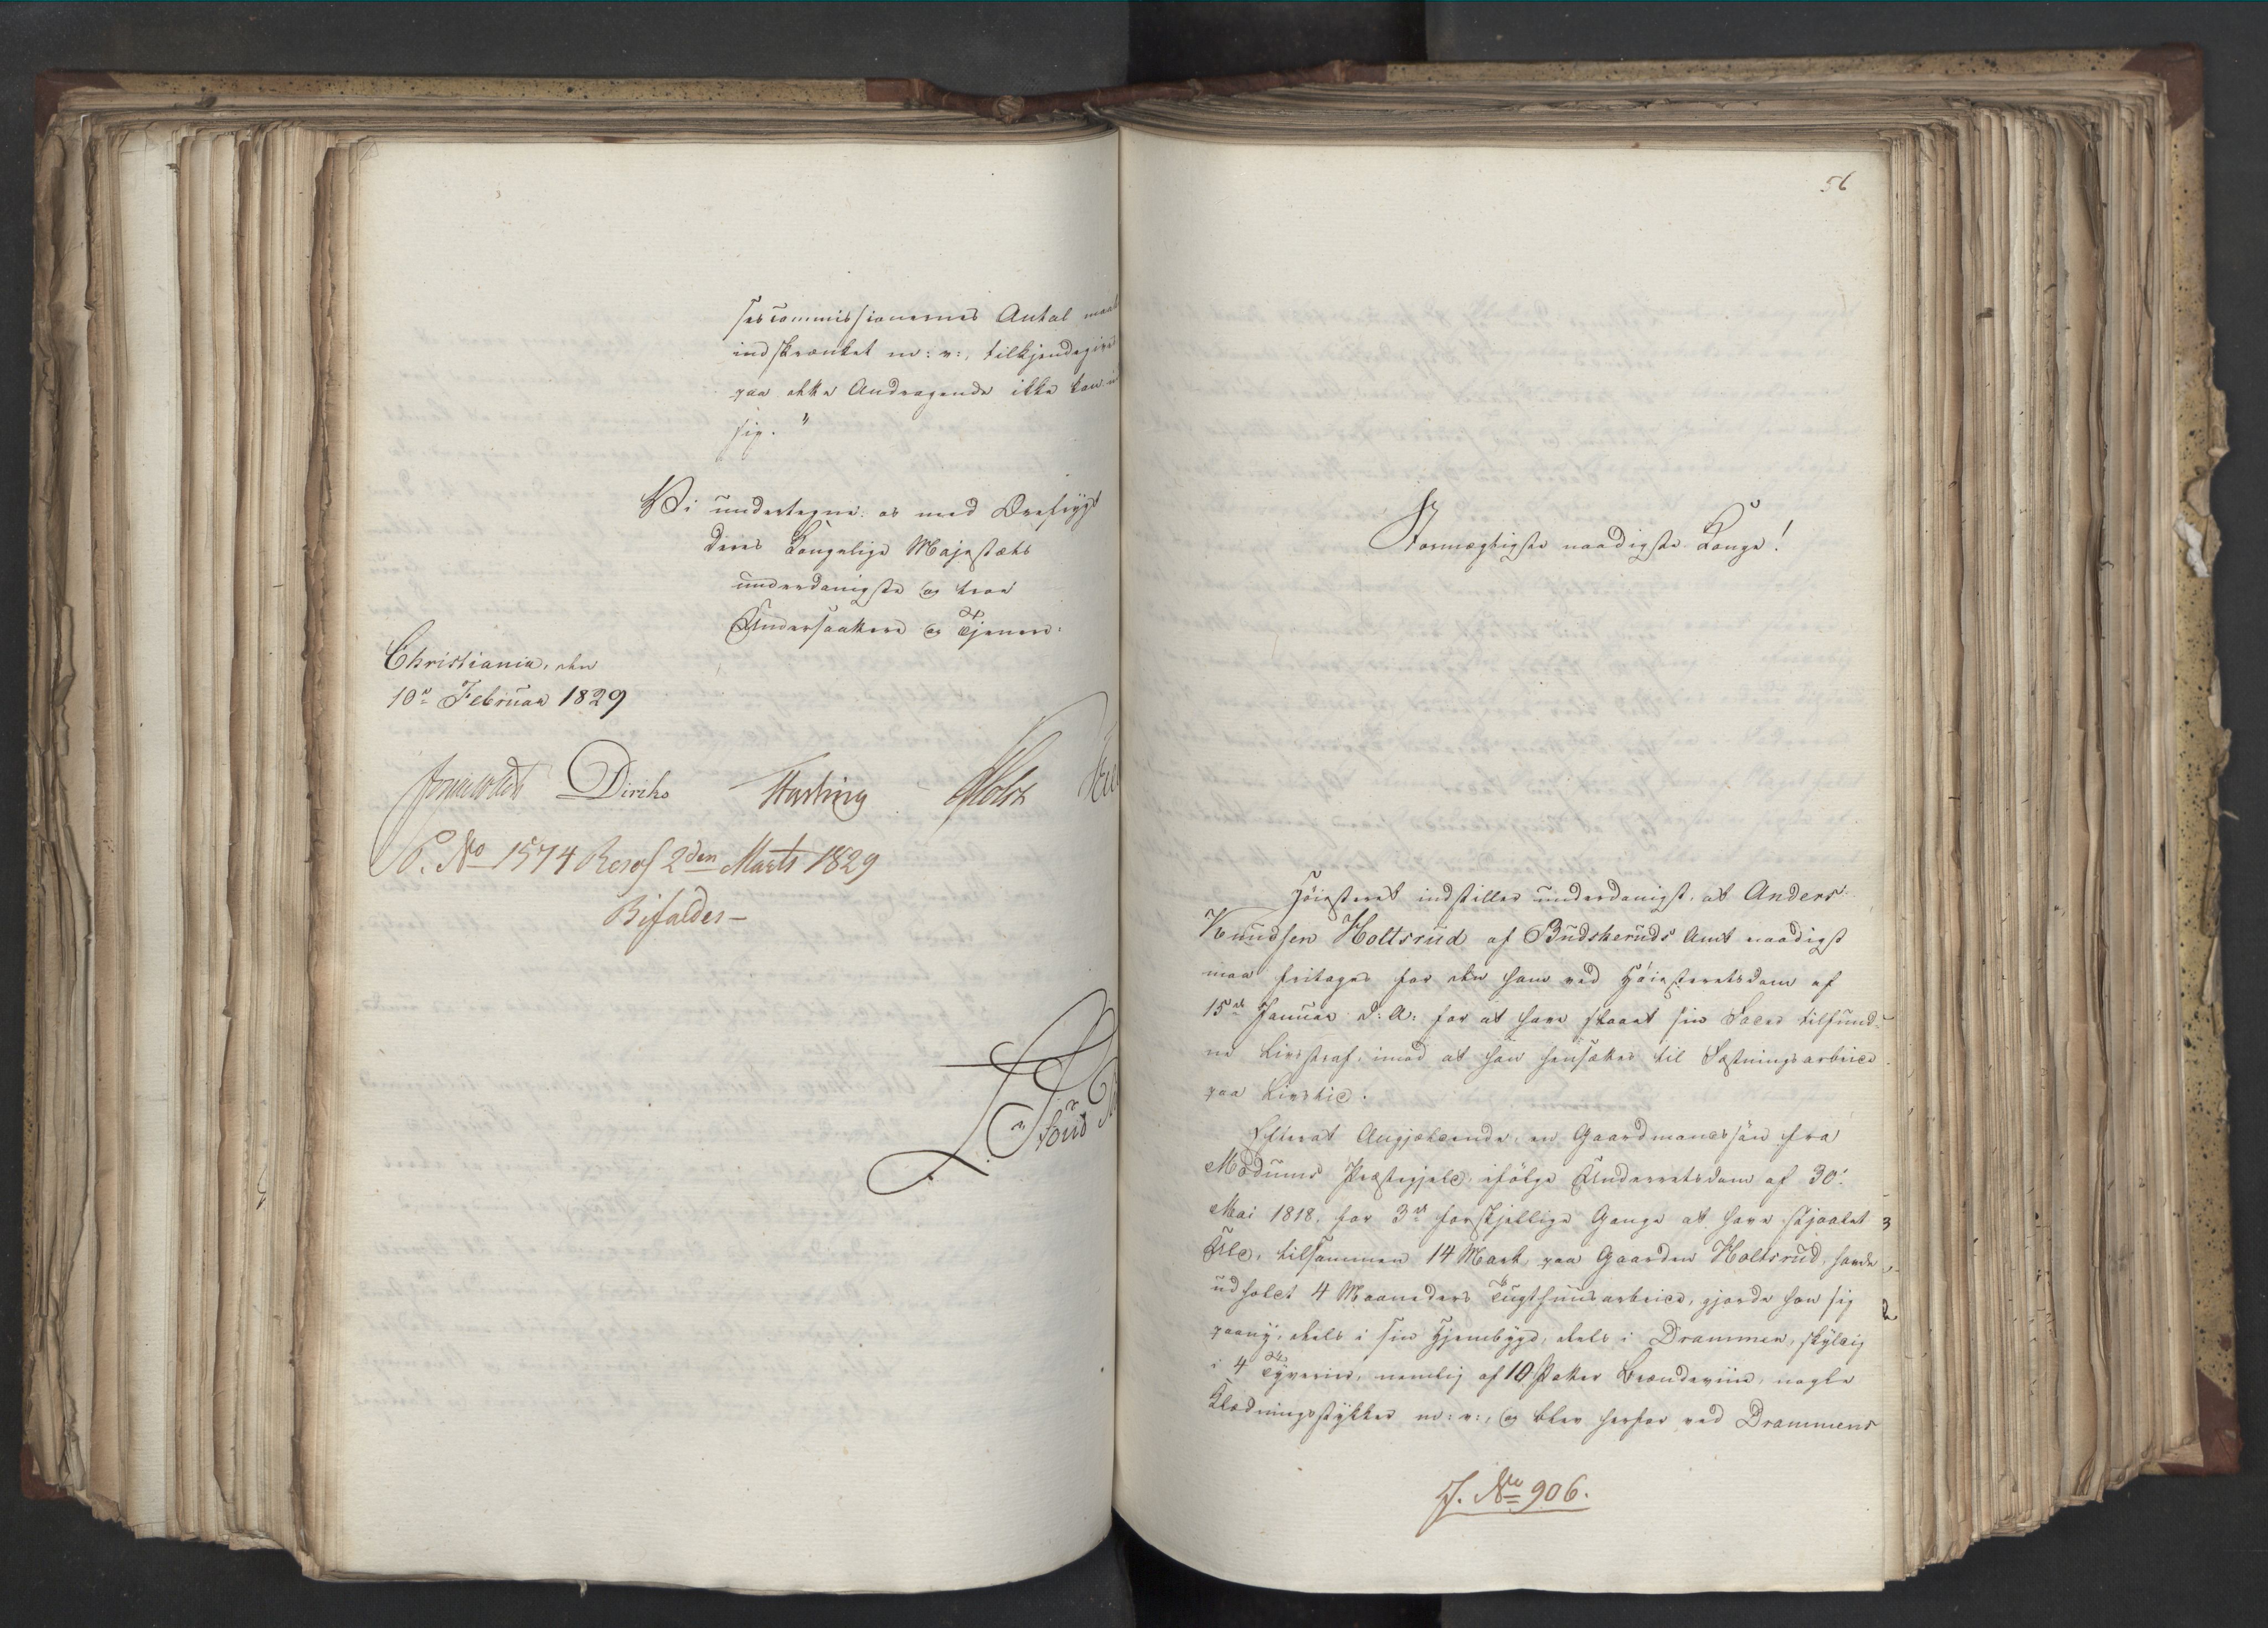 sescommissionernes Antal maat
indskrænket m: v:, tilkjendegives
paa dette Andragende ikke kan
sig. "
Vi undertegne os med Ærefrygt
Deres Kongelige Majestæts
underdanigste og troe
Undersaatter og Tjenere.
Christiania, den
10de Februar 1829
Diriks Hartvig Holst
P. No 1574 Resol 2den Marts 1829
Bifaldes -
56
Stormægtigste naadigste Konge!
Høiesteret indstiller underdanigst, at Anders
Knudsen Holtsrud af Budskeruds Amt naadigst
maa fritages for den ham ved Høiesteretsdom af
15de Januar d: A: for at have slaaet sin Fader tilfund-
ne Livsstraf, imod at han hensættes til Fæstningsarbeide
paa Livstid.
Efterat Angjældende, en Gaardmandssøn fra
Modums Præstegjeld, ifølge Underretsdom af 30.
Mai 1818, for 3de forskjellige Gange at have stjaalet
Uld, tilsammen 14 Mark, paa Gaarden Holtsrud, havde
udholdt 4 Maaneders Tugthuusarbeide, gjorde han sig
paany, deels i sin Hjembygd, deels i Drammen, skyldig
i 4 Tyverier, nemlig af 10 Potter Brændeviin, nogle
Klædningsstykker m: v:, og blev herfor ved Drammens
J. No 906.